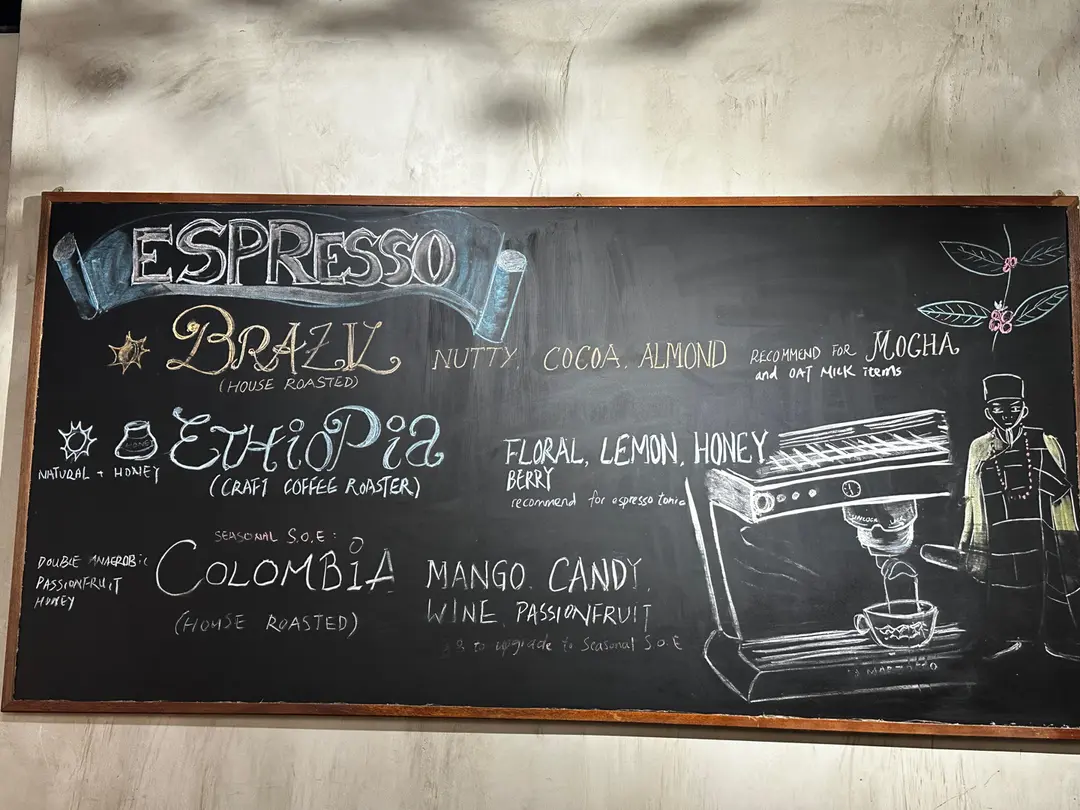 ESPRESSO
BRAZIL
(HOUSE ROASTED)
NUTTY, COCOA, ALMOND
RECOMMEND FOR MOCHA
and OAT MILK items
NATURAL + HONEY
HONEY
ETHIOPIA
(CRAFT COFFEE ROASTER)
FLORAL, LEMON, HONEY,
BERRY
recommend for espresso tonic
DOUBLE ANAEROBIC
PASSIONFRUIT
HONEY
SEASONAL S.O.E :
COLOMBIA
(HOUSE ROASTED)
MANGO, CANDY,
WINE, PASSIONFRUIT
to upgrade to Seasonal S.O.E